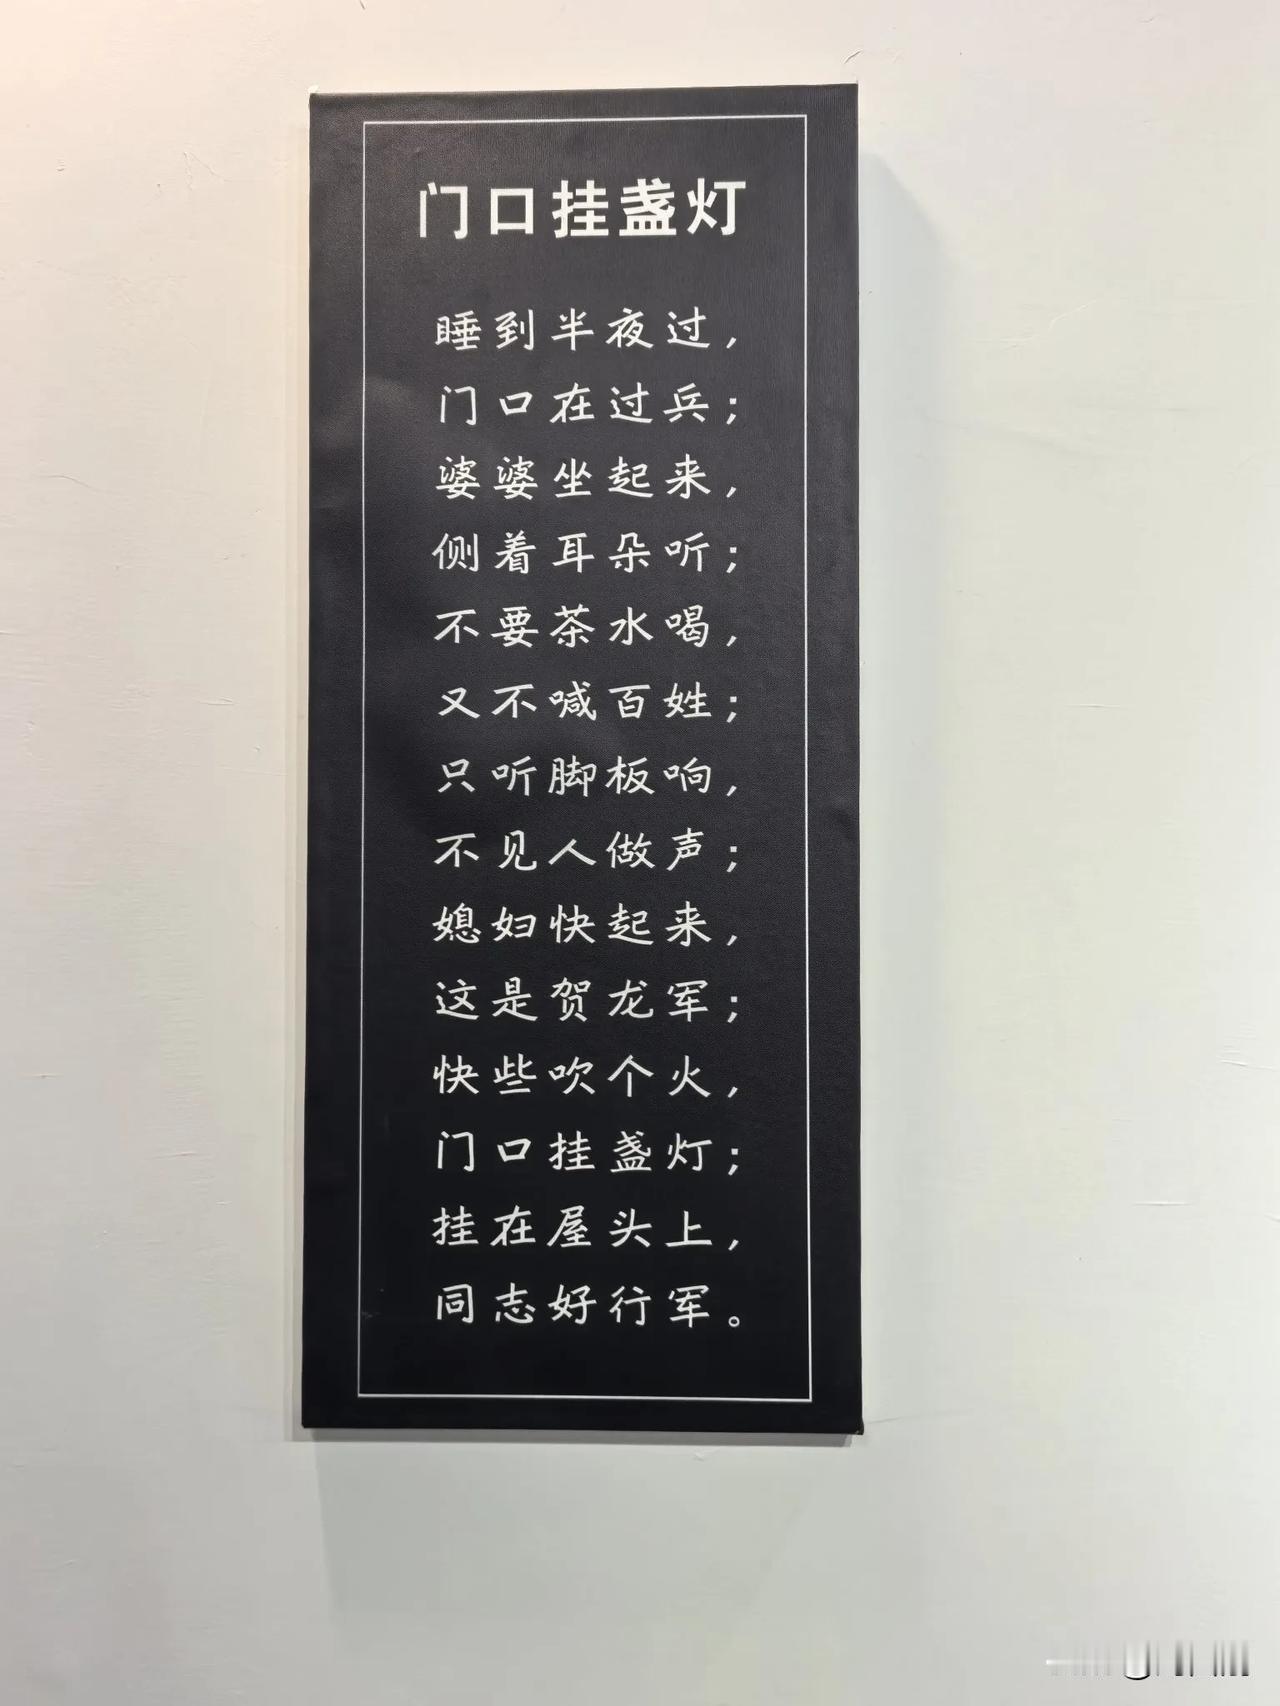 门口挂盏灯
睡到半夜过，
门口在过兵；
婆婆坐起来，
侧着耳朵听；
不要茶水喝，
又不喊百姓；
只听脚板响，
不见人做声；
媳妇快起来，
这是贺龙军；
快些吹个火，
门口挂盏灯；
挂在屋头上，
同志好行军。